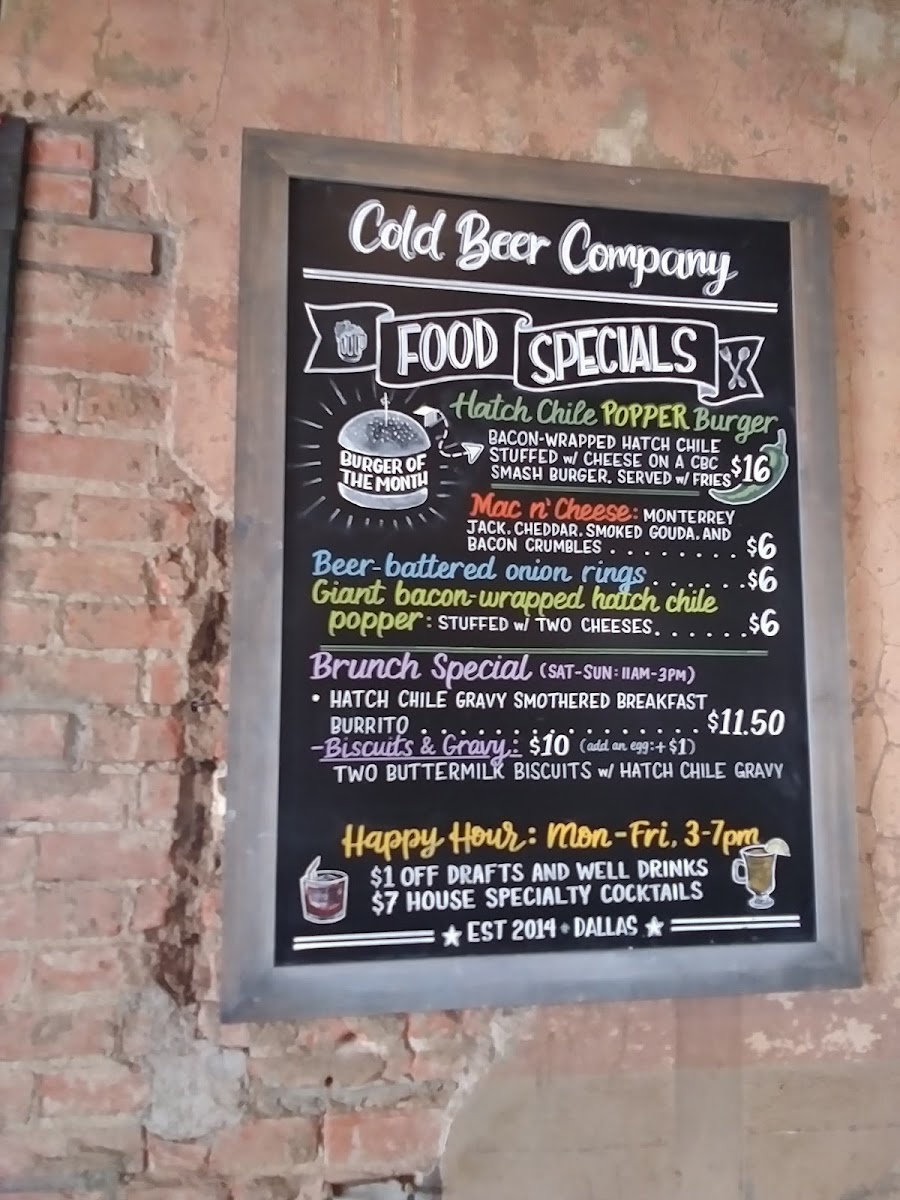 Cold Beer Company
FOOD SPECIALS
Hatch Chile POPPER Burger
BURGER OF
THE MONTH
BACON-WRAPPED HATCH CHILE
STUFFED w/ CHEESE ON A CBC
SMASH BURGER. SERVED w/ FRIES $16
Mac n' Cheese: MONTERREY
JACK, CHEDDAR, SMOKED GOUDA, AND
BACON CRUMBLES . . . . . . . . $6
Beer-battered onion rings . . . . . . $6
Giant bacon-wrapped hatch chile
popper: STUFFED w/ TWO CHEESES . . . . . . $6
Brunch Special (SAT-SUN: 11AM-3PM)
• HATCH CHILE GRAVY SMOTHERED BREAKFAST
BURRITO . . . . . . . . . . . . . . . $11.50
-Biscuits & Gravy: $10 (add an egg: + $1)
TWO BUTTERMILK BISCUITS w/ HATCH CHILE GRAVY
Happy Hour: Mon-Fri, 3-7pm
$1 OFF DRAFTS AND WELL DRINKS
$7 HOUSE SPECIALTY COCKTAILS
★ EST 2014 • DALLAS ★